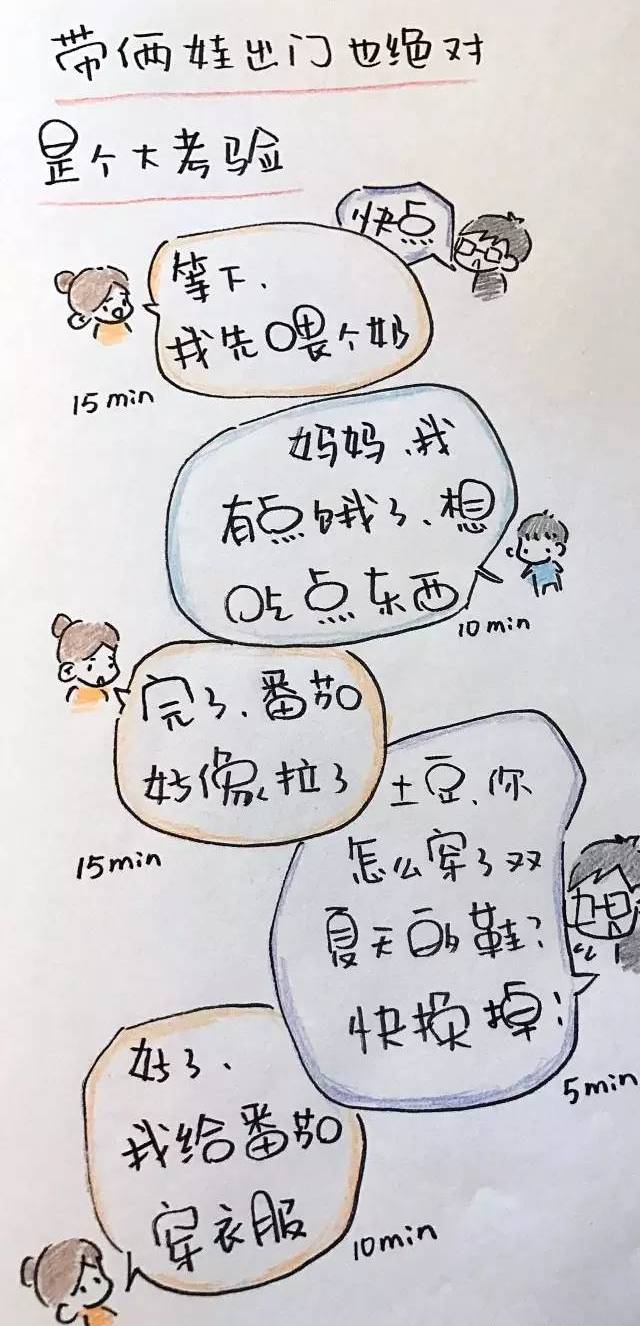 带俩娃出门也绝对
是个大考验
快点
等下、
我先喂个奶
15 min
妈妈、我
有点饿了、想
吃点东西
10 min
完了、番茄
好像拉了
15 min
土豆、你
怎么穿了双
夏天的鞋?
快换掉!
5 min
好了、
我给番茄
穿衣服
10 min